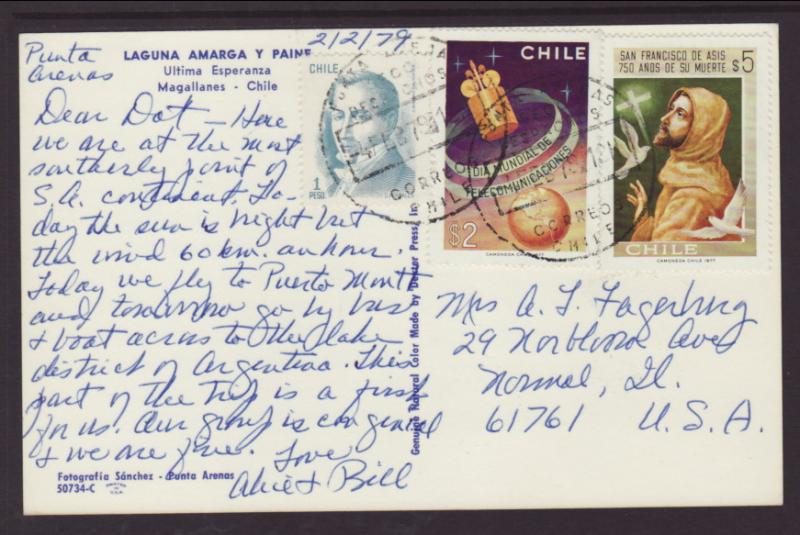 Punta
Arenas
LAGUNA AMARGA Y PAINE
Ultima Esperanza
Magallanes - Chile
2/2/79
Dear Dot — Here
we are at the most
southerly point of
S.A. continent. To-
day the sun is bright but
the wind 60 km. an hour.
Today we fly to Puerto Montt
and tomorrow go by bus
& boat across to the lake
district of Argentina. This
part of the trip is a first
for us. Our group is congenial
& we are fine. Love
Alice & Bill
Fotografía Sánchez - Punta Arenas
50734-C
Genuine Natural Color Made by Dexter Press, In
CHILE
1
PESO
CHILE
DIA MUNDIAL DE
TELECOMUNICACIONES
$2
CAMONEDA CHILE 1977
SAN FRANCISCO DE ASIS
750 AÑOS DE SU MUERTE $5
CHILE
CASMONEDA CHILE 1977
CORREOS
CHILE
CORREOS
CHILE
Mrs A. L. Fagerburg
29 Norbloom Ave
Normal, Il.
61761 U.S.A.